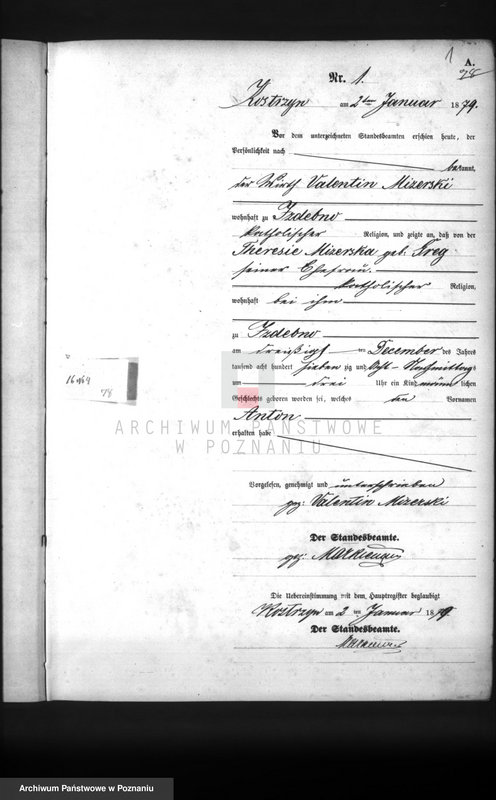 1
A.
78
Nr. 1.
Kostrzyn am 2ten Januar 1879.
Vor dem unterzeichneten Standesbeamten erschien heute, der
Persönlichkeit nach
bekannt,
der Wirth Valentin Mizerski
wohnhaft zu Izdebno
katholischer Religion, und zeigte an, daß von der
Theresie Mizerska geb. Kreg
seiner Ehefrau
katholischer Religion,
wohnhaft bei ihm
zu Izdebno
am dreißigsten December des Jahres
tausend acht hundert siebenzig und acht Nachmittag
um drei Uhr ein Kind männlichen
Geschlechts geboren worden sei, welches den Vornamen
Anton
erhalten habe
Vorgelesen, genehmigt und unterschrieben
gez: Valentin Mizerski
Der Standesbeamte.
gez:
Die Uebereinstimmung mit dem Hauptregister beglaubigt
Kostrzyn am 2ten Januar 1879
Der Standesbeamte.
78
ARCHIWUM PAŃSTWOWE
W POZNANIU
Archiwum Państwowe w Poznaniu